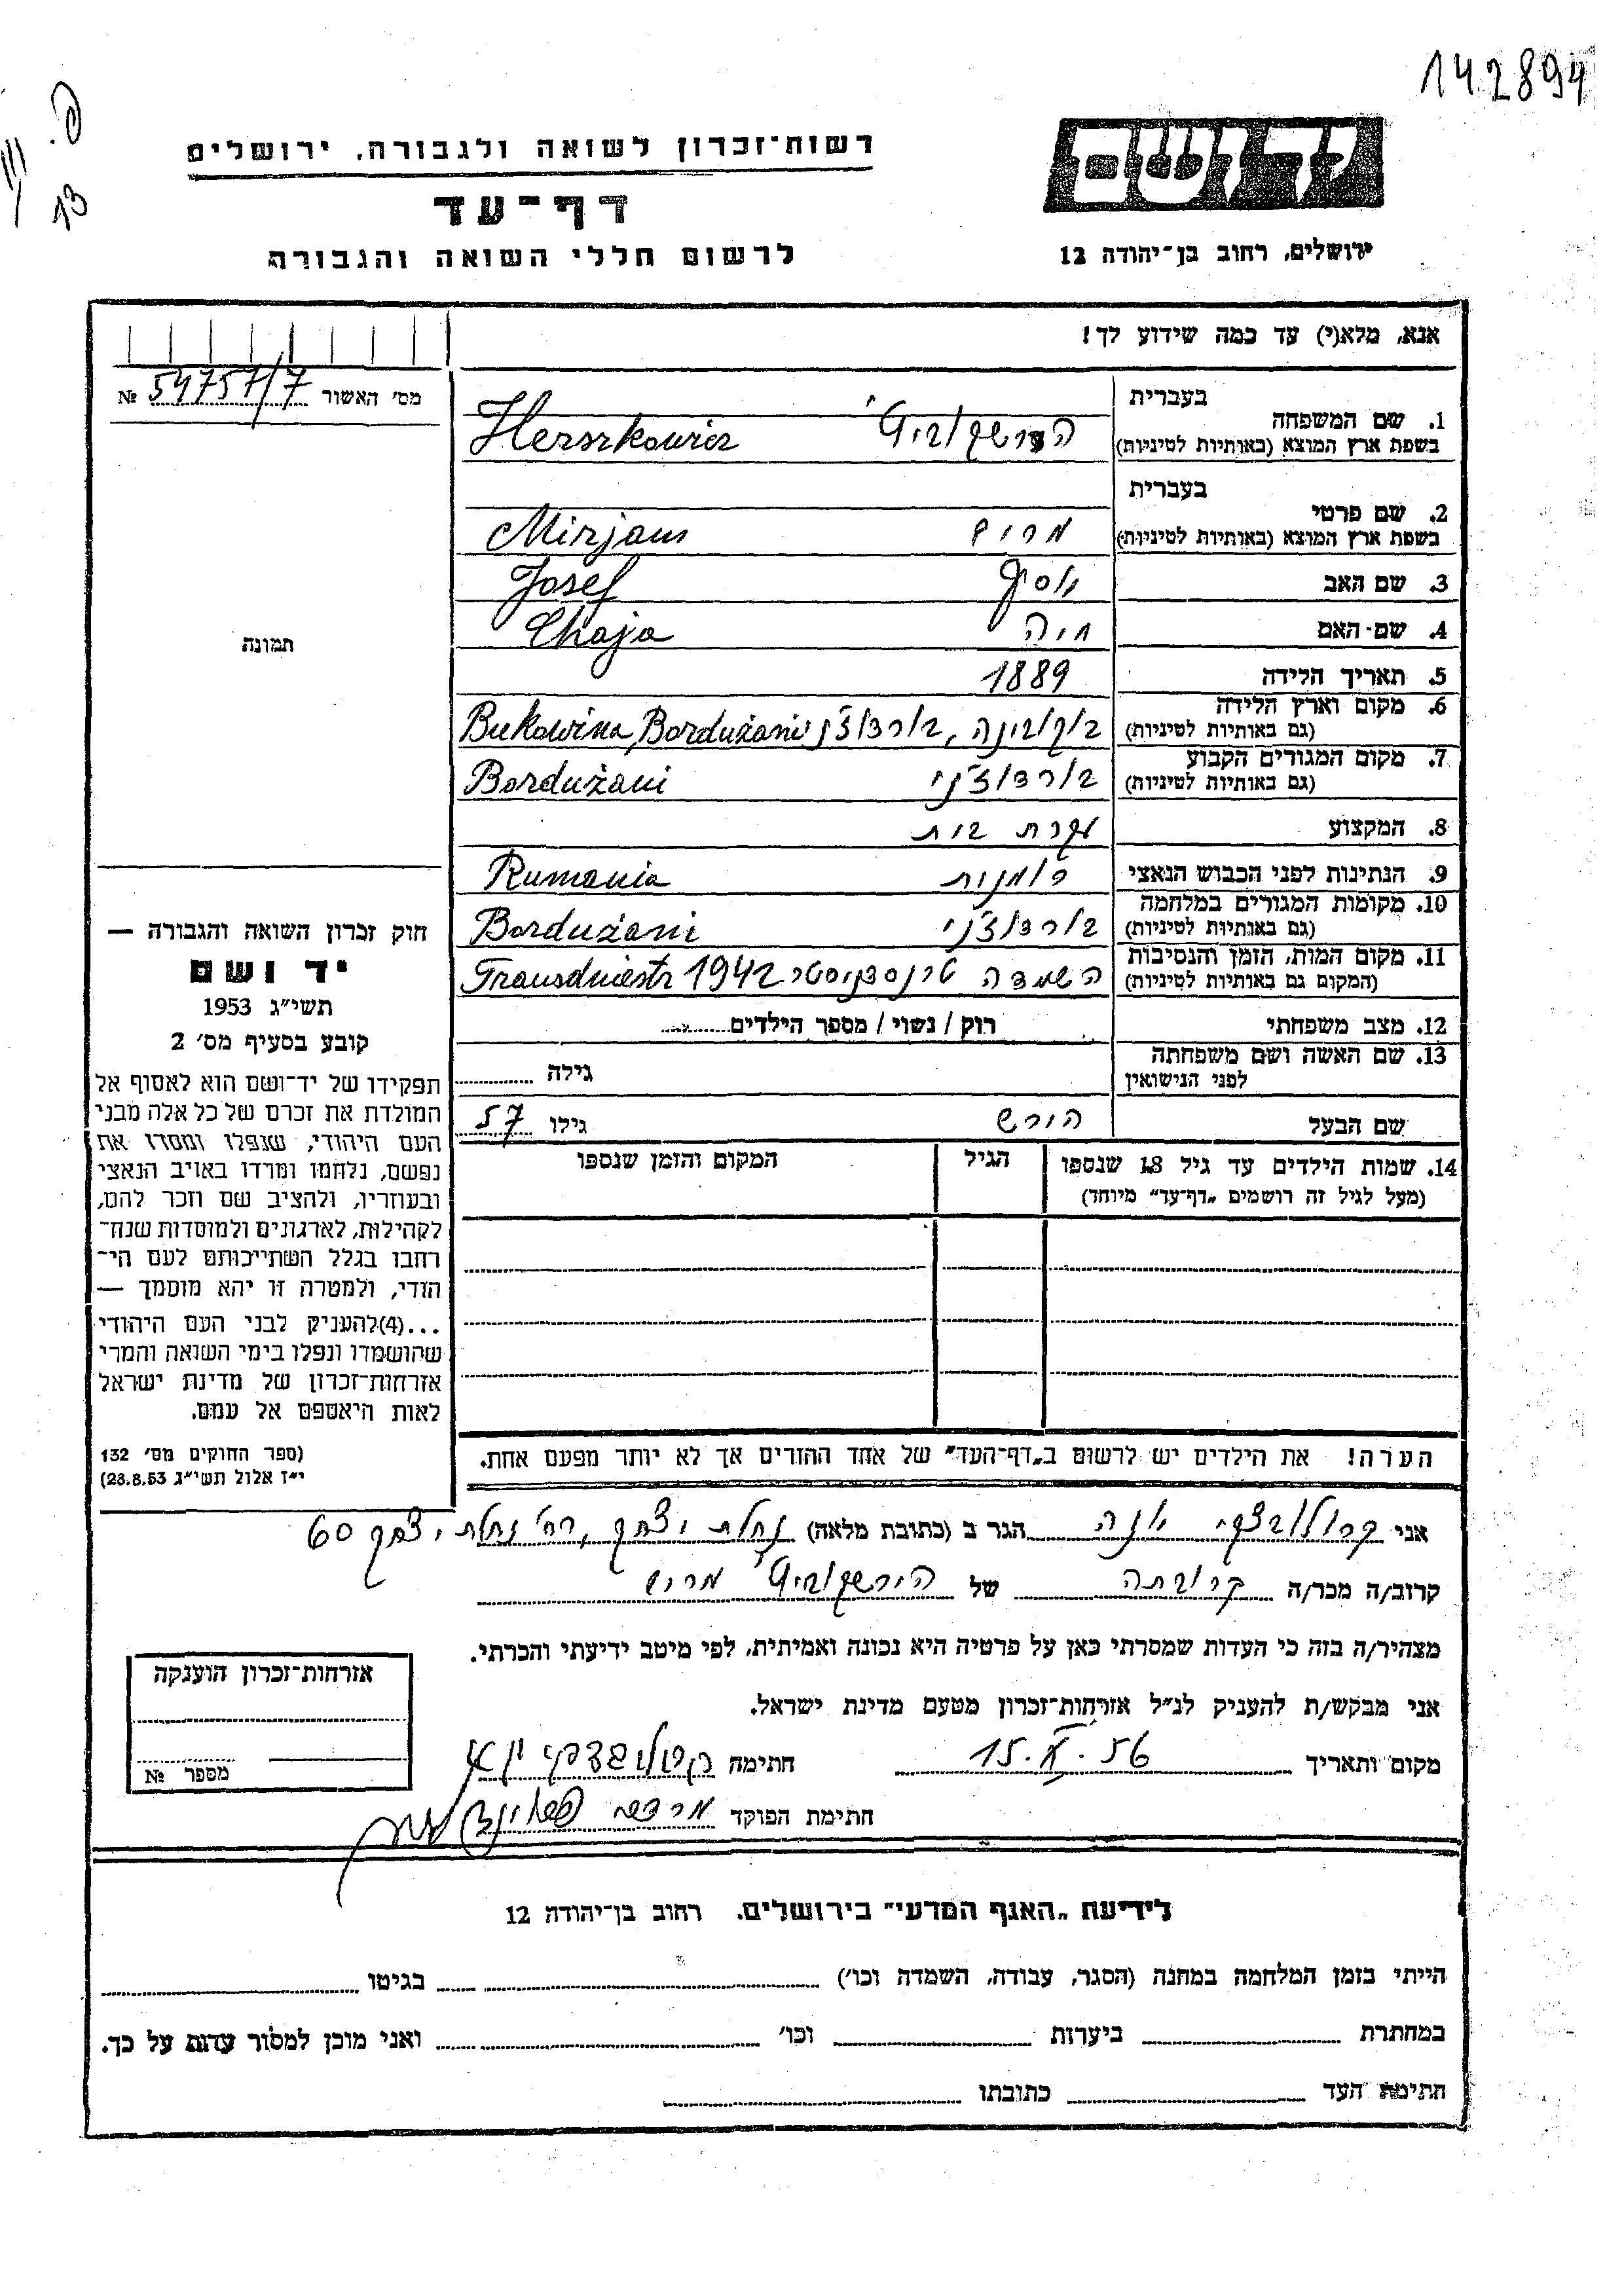 142894
פ.
13
יד ושם
רשות־זכרון לשואה ולגבורה, ירושלים
דף־עד
לרשום חללי השואה והגבורה
ירושלים, רחוב בן־יהודה 12
אנא, מלא(י) עד כמה שידוע לך!
מס׳ האשור 54757/7 №
תמונה
בעברית
1. שם המשפחה הרשקוביץ׳ Herszkowicz
בשפת ארץ המוצא (באותיות לטיניות)
בעברית
2. שם פרטי
בשפת ארץ המוצא (באותיות לטיניות) מרים Mirjam
3. שם האב יוסף Josef
4. שם־האם חיה Chaja
5. תאריך הלידה 1889
6. מקום וארץ הלידה
(גם באותיות לטיניות) בוקובינה, בורדוז׳ני Bukowina, Bordużani
7. מקום המגורים הקבוע
(גם באותיות לטיניות) בורדוז׳ני Bordużani
8. המקצוע עקרת בית
9. הנתינות לפני הכבוש הנאצי רומנית Rumania
10. מקומות המגורים במלחמה
(גם באותיות לטיניות) בורדוז׳ני Bordużani
11. מקום המות, הזמן והנסיבות
(המקום גם באותיות לטיניות) השמדה טרנסדניסטר 1942 Transdniestr
12. מצב משפחתי רוק / נשוי / מספר הילדים
13. שם האשה ושם משפחתה
לפני הנישואין גילה
שם הבעל הירש גילו 57
14. שמות הילדים עד גיל 18 שנספו הגיל המקום והזמן שנספו
(מעל לגיל זה רושמים „דף־עד״ מיוחד)
הערה! את הילדים יש לרשום ב„דף־העד״ של אחד ההורים אך לא יותר מפעם אחת.
חוק זכרון השואה והגבורה —
יד ושם
תשי״ג 1953
קובע בסעיף מס׳ 2
תפקידו של יד־ושם הוא לאסוף אל
המולדת את זכרם של כל אלה מבני
העם היהודי, שנפלו ומסרו את
נפשם, נלחמו ומרדו באויב הנאצי
ובעוזריו, ולהציב שם וזכר להם,
לקהילות, לארגונים ולמוסדות שנח־
רבו בגלל השתייכותם לעם הי־
הודי, ולמטרה זו יהא מוסמך —
...(4)להעניק לבני העם היהודי
שהושמדו ונפלו בימי השואה והמרי
אזרחות־זכרון של מדינת ישראל
לאות היאספם אל עמם.
(ספר החוקים מס׳ 132
י״ז אלול תשי״ג 28.8.53)
אני יונה הגר ב (כתובת מלאה) נחלת יצחק, רח׳ נחלת יצחק 60
קרוב/ה מכר/ה קרובתה של הירשקוביץ׳ מרים
מצהיר/ה בזה כי העדות שמסרתי כאן על פרטיה היא נכונה ואמיתית, לפי מיטב ידיעתי והכרתי.
אני מבקש/ת להעניק לנ״ל אזרחות־זכרון מטעם מדינת ישראל.
מקום ותאריך 56 חתימה
חתימת הפוקד
אזרחות־זכרון הוענקה
מספר №
לידיעת „האגף המדעי״ בירושלים. רחוב בן־יהודה 12
הייתי בזמן המלחמה במחנה (הסגר, עבודה, השמדה וכו׳) בגיטו
במחתרת ביערות וכו׳ ואני מוכן למסור עדות על כך.
חתימת העד כתובתו